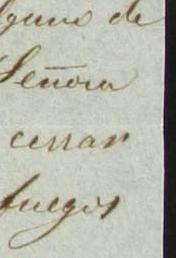 lguno de
Señora
cerrar
fuegos